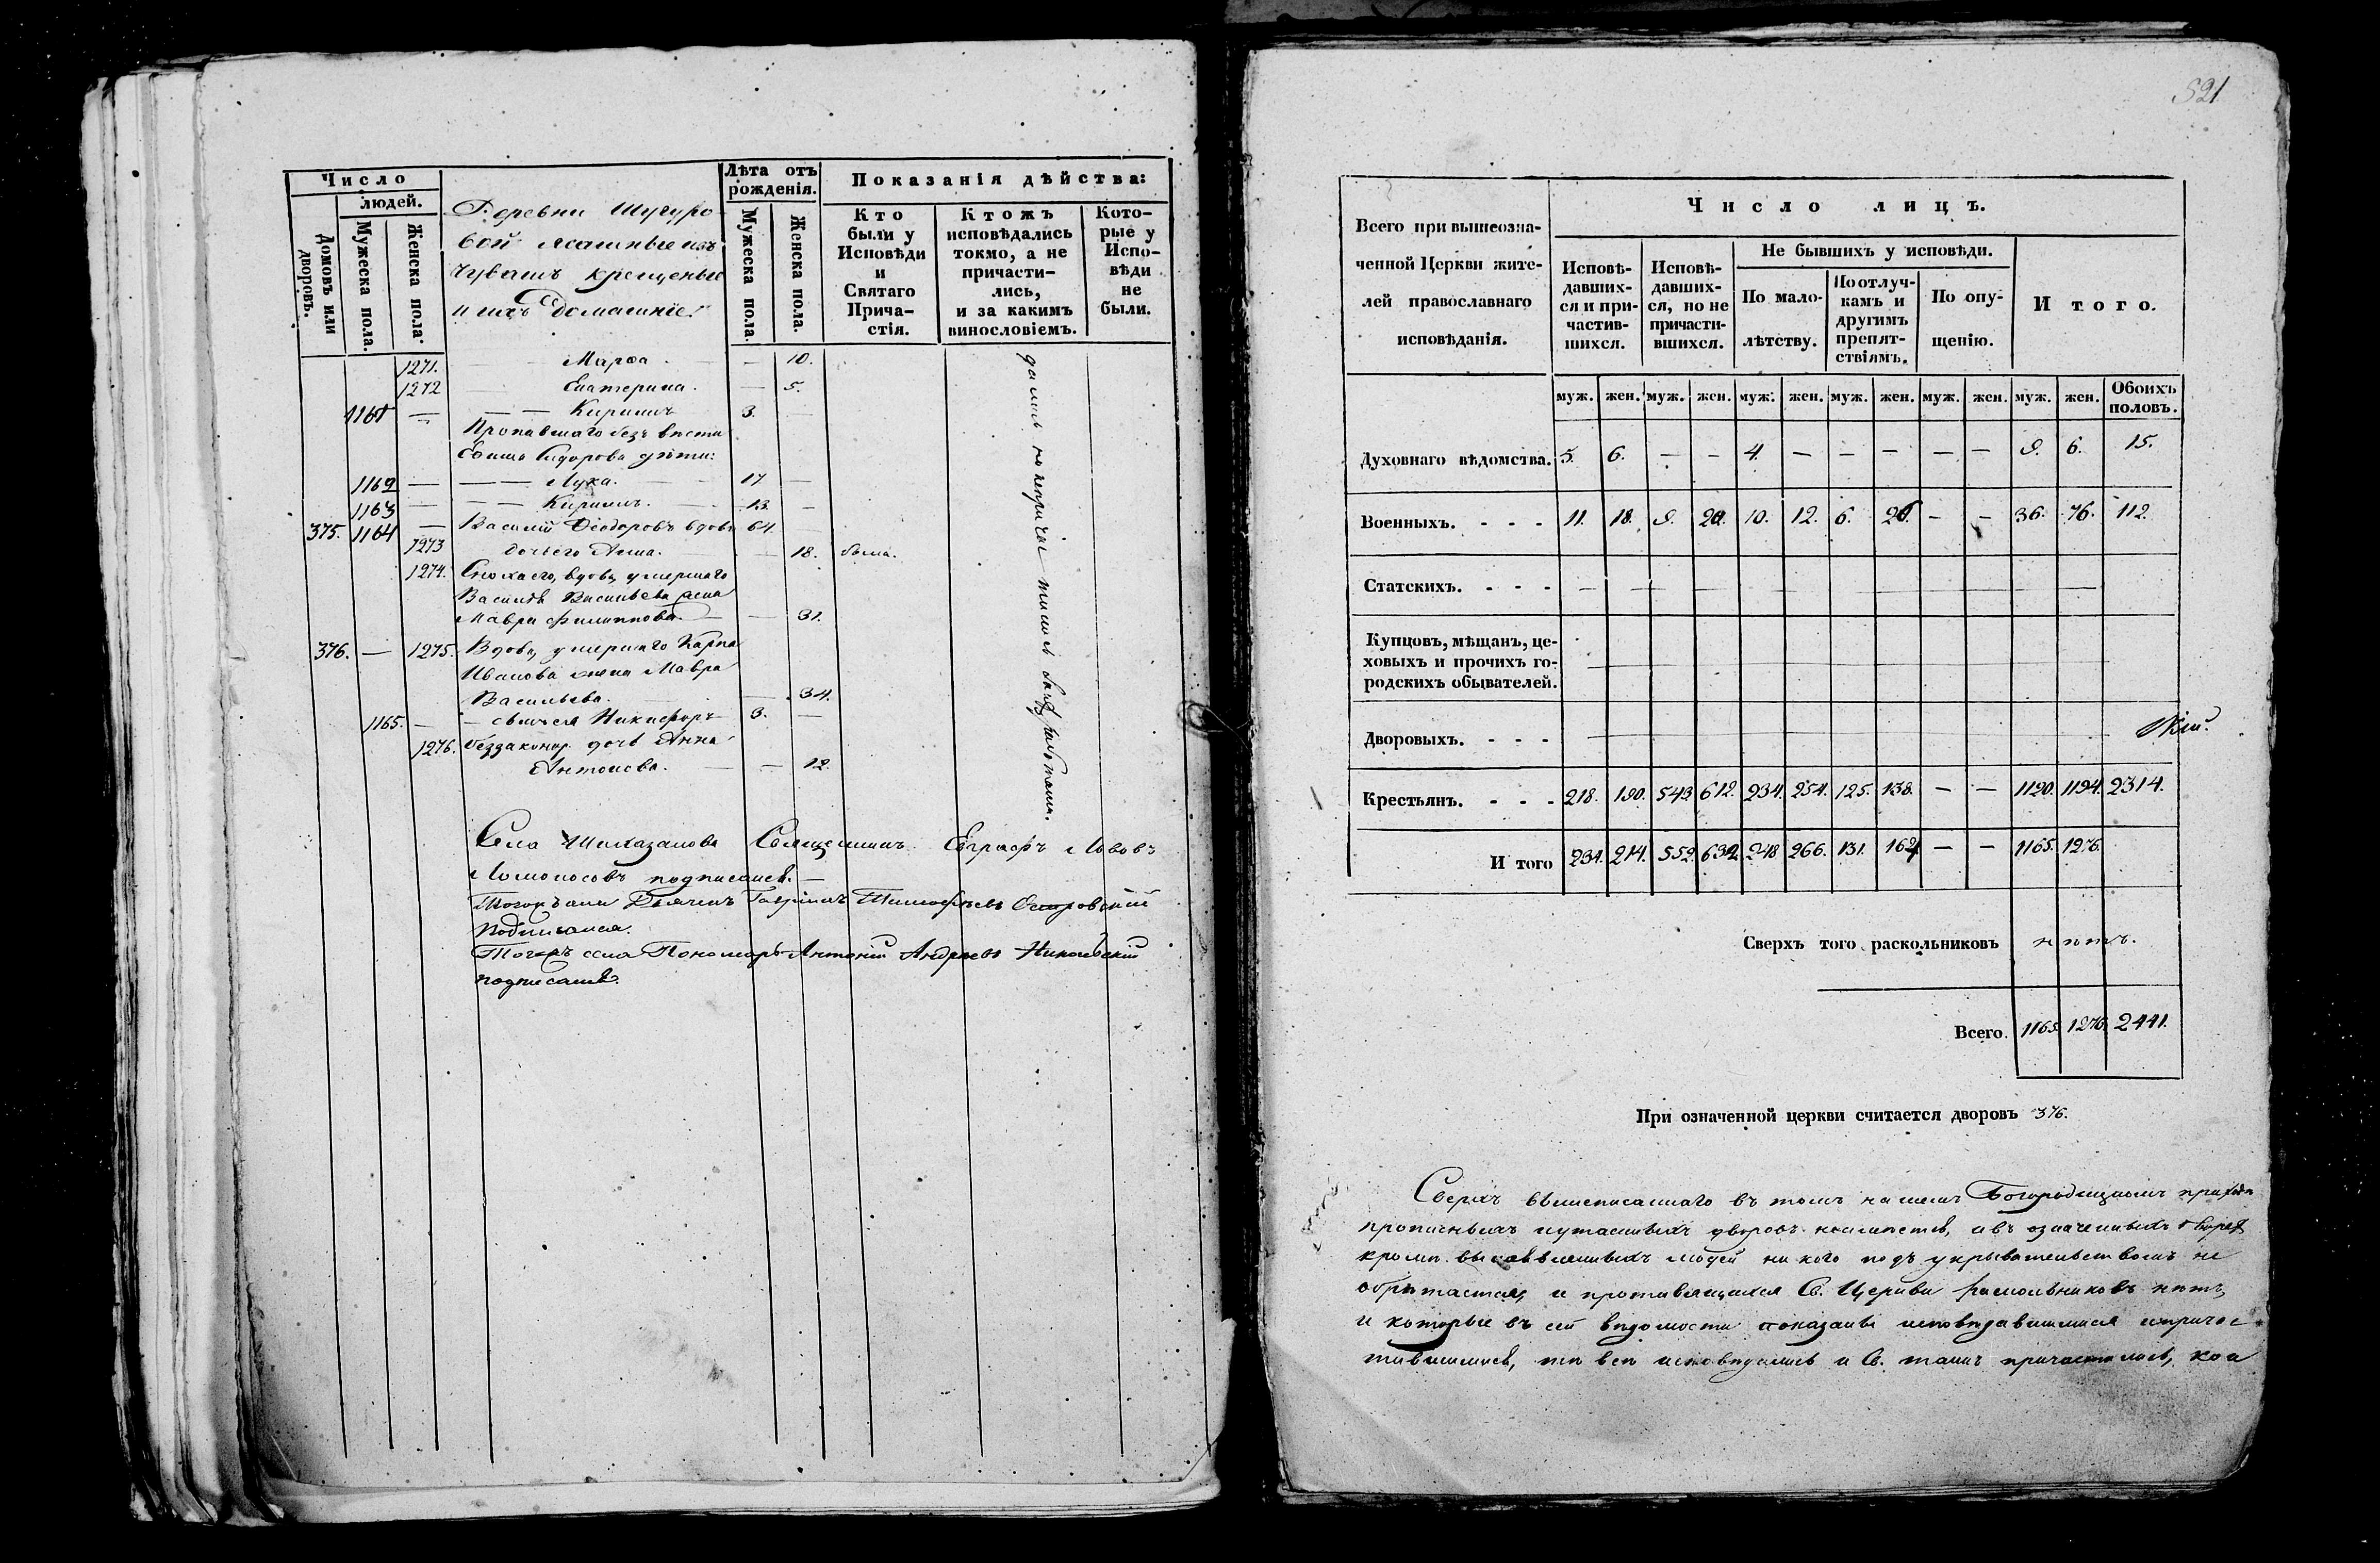 Число
людей.
Домовъ или дворовъ.
Мужеска пола.
Женска пола.
Деревни Шугуро-
вой ясашные изъ
Чувашъ крещеные
и ихъ домашніе:
Лѣта отъ
рожденія.
Мужеска пола.
Женска пола.
Показанія дѣйства:
Кто
были у
Исповѣди
и
Святаго
Прича-
стія.
Ктожъ
исповѣдались
токмо, а не
причасти-
лись,
и за какимъ
винословіемъ.
Кото-
рые у
Испо-
вѣди
не
были.
1271. — Марѳа. — 10.
1272 — Екатерина. — 5.
1161 — — Кириллъ 3. —
Пропавшаго безъ вѣсти
Сидорова дѣти:
1162 — — Лука. 17 —
1163 — — Кириллъ. 13. —
375. 1164 — Василій Ѳеодоровъ вдовъ 64. —
1273 дочь его Анна. — 18. была.
1274. Сноха его, вдова, умершаго
Василья Васильева жена
Мавра Филиппова. — 31.
376. — 1275. Вдова, умершаго Карпа
Иванова жена Мавра
Васильева. — 34.
1165. — — сынъ ея Никифоръ 3. —
1276. беззаконнор. дочь Анна
Антонова. — 12.
Села Шихазанова Священникъ Евграфъ Львовъ
Ломоносовъ подписался.
Тогожъ села Дьячекъ Гавріилъ Тимоѳеевъ Островскій
подписался.
Тогожъ села Пономарь Антоній Андреевъ Никольскій
подписался.
521
Всего при вышеозна-
ченной Церкви жите-
лей православнаго
исповѣданія.
Число лицъ.
Исповѣ-
давших-
ся и при-
частив-
шихся.
Исповѣ-
давших-
ся, но не
причасти-
вшихся.
Не бывшихъ у исповѣди.
По мало-
лѣтству.
По отлуч-
камъ и
другимъ
препят-
ствіямъ.
По опу-
щенію.
Итого.
муж. жен. муж. жен. муж. жен. муж. жен. муж. жен. муж. жен. Обоихъ
половъ.
Духовнаго вѣдомства. 5. 6. — — 4. — — — — — 9. 6. 15.
Военныхъ. - - - 11. 18. 9. 20. 10. 12. 6. 26. — — 36. 76. 112.
Статскихъ. - - - — — — — — — — — —
Купцовъ, мѣщанъ, це-
ховыхъ и прочихъ го-
родскихъ обывателей.
Дворовыхъ. - - -
Крестьянъ. - - - 218. 190. 543. 612. 234. 254. 125. 138. — — 1120. 1194. 2314.
И того 234. 214. 552. 632. 248 266. 131. 164 — — 1165. 1276.
Сверхъ того раскольниковъ нѣтъ.
Всего. 1165. 1276. 2441.
При означенной церкви считается дворовъ 376.
Сверхъ вышеписаннаго въ томъ нашемъ Богородицкомъ приходѣ
прописныхъ и утаенныхъ дворовъ не имѣется, а въ означенныхъ дворахъ
кромѣ вышеявленныхъ людей никого подъ укрывательствомъ не
обрѣтается, и противящихся Св. Церкви раскольниковъ нѣтъ,
и которые въ сей вѣдомости показаны исповѣдавшимися и причас
тившимися, тѣ всѣ исповѣдались и Св. таинъ причастились, кои